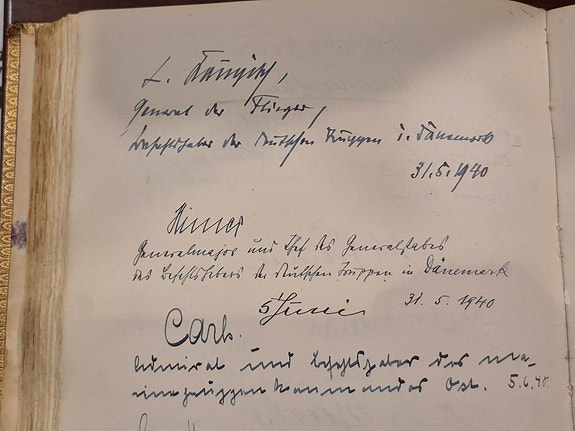 L. Kaupisch,
General der Flieger,
Befehlshaber der deutschen Truppen i. Dänemark
31.5.1940
Himer
Generalmajor und Chef des Generalstabes
des Befehlshabers der deutschen Truppen in Dänemark
31. 5. 1940
5 Juni
Carls.
Admiral und Befehlshaber des Ma-
rinegruppenkommandos Ost. 5.6.40.